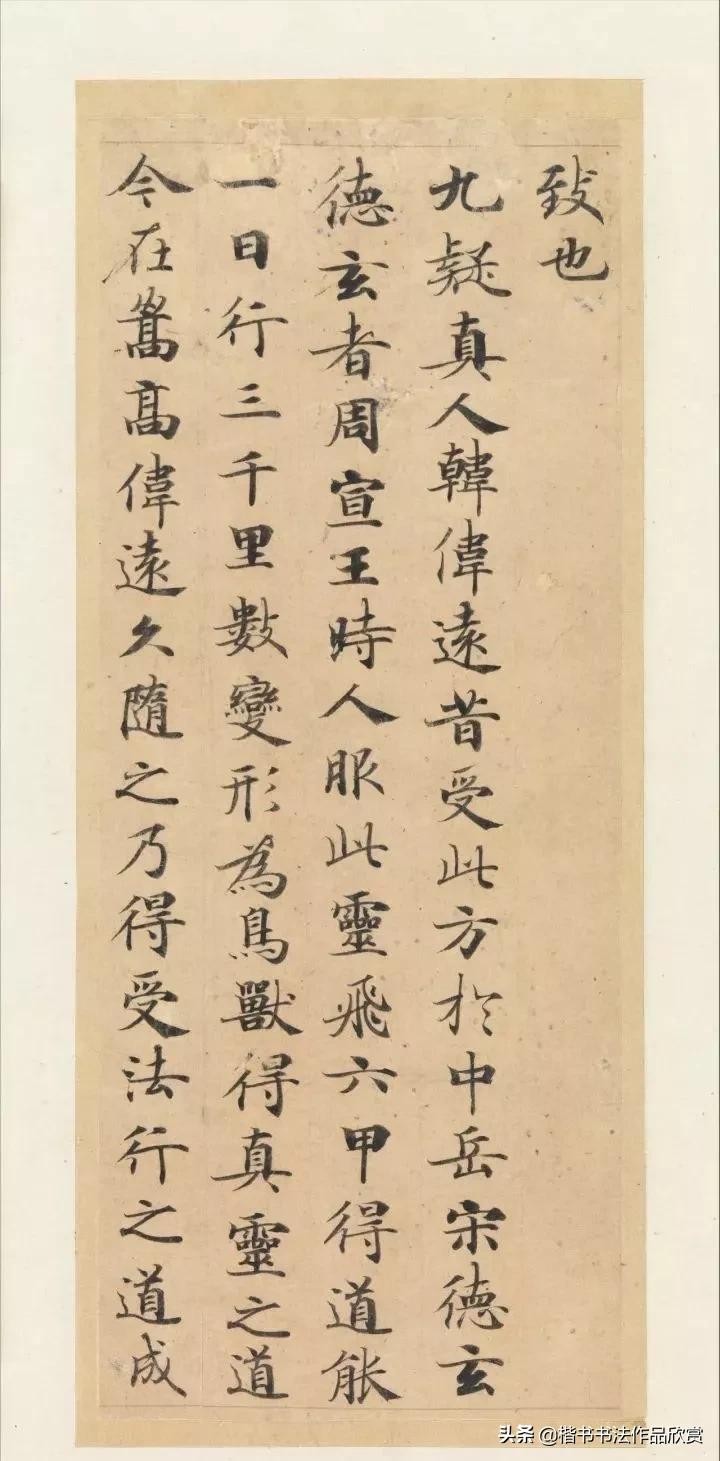 致也
九疑真人韓偉遠昔受此方於中岳宋德玄
德玄者周宣王時人服此靈飛六甲得道能
一日行三千里數變形為鳥獸得真靈之道
今在嵩高偉遠久隨之乃得受法行之道成
头条 @楷书书法作品欣赏